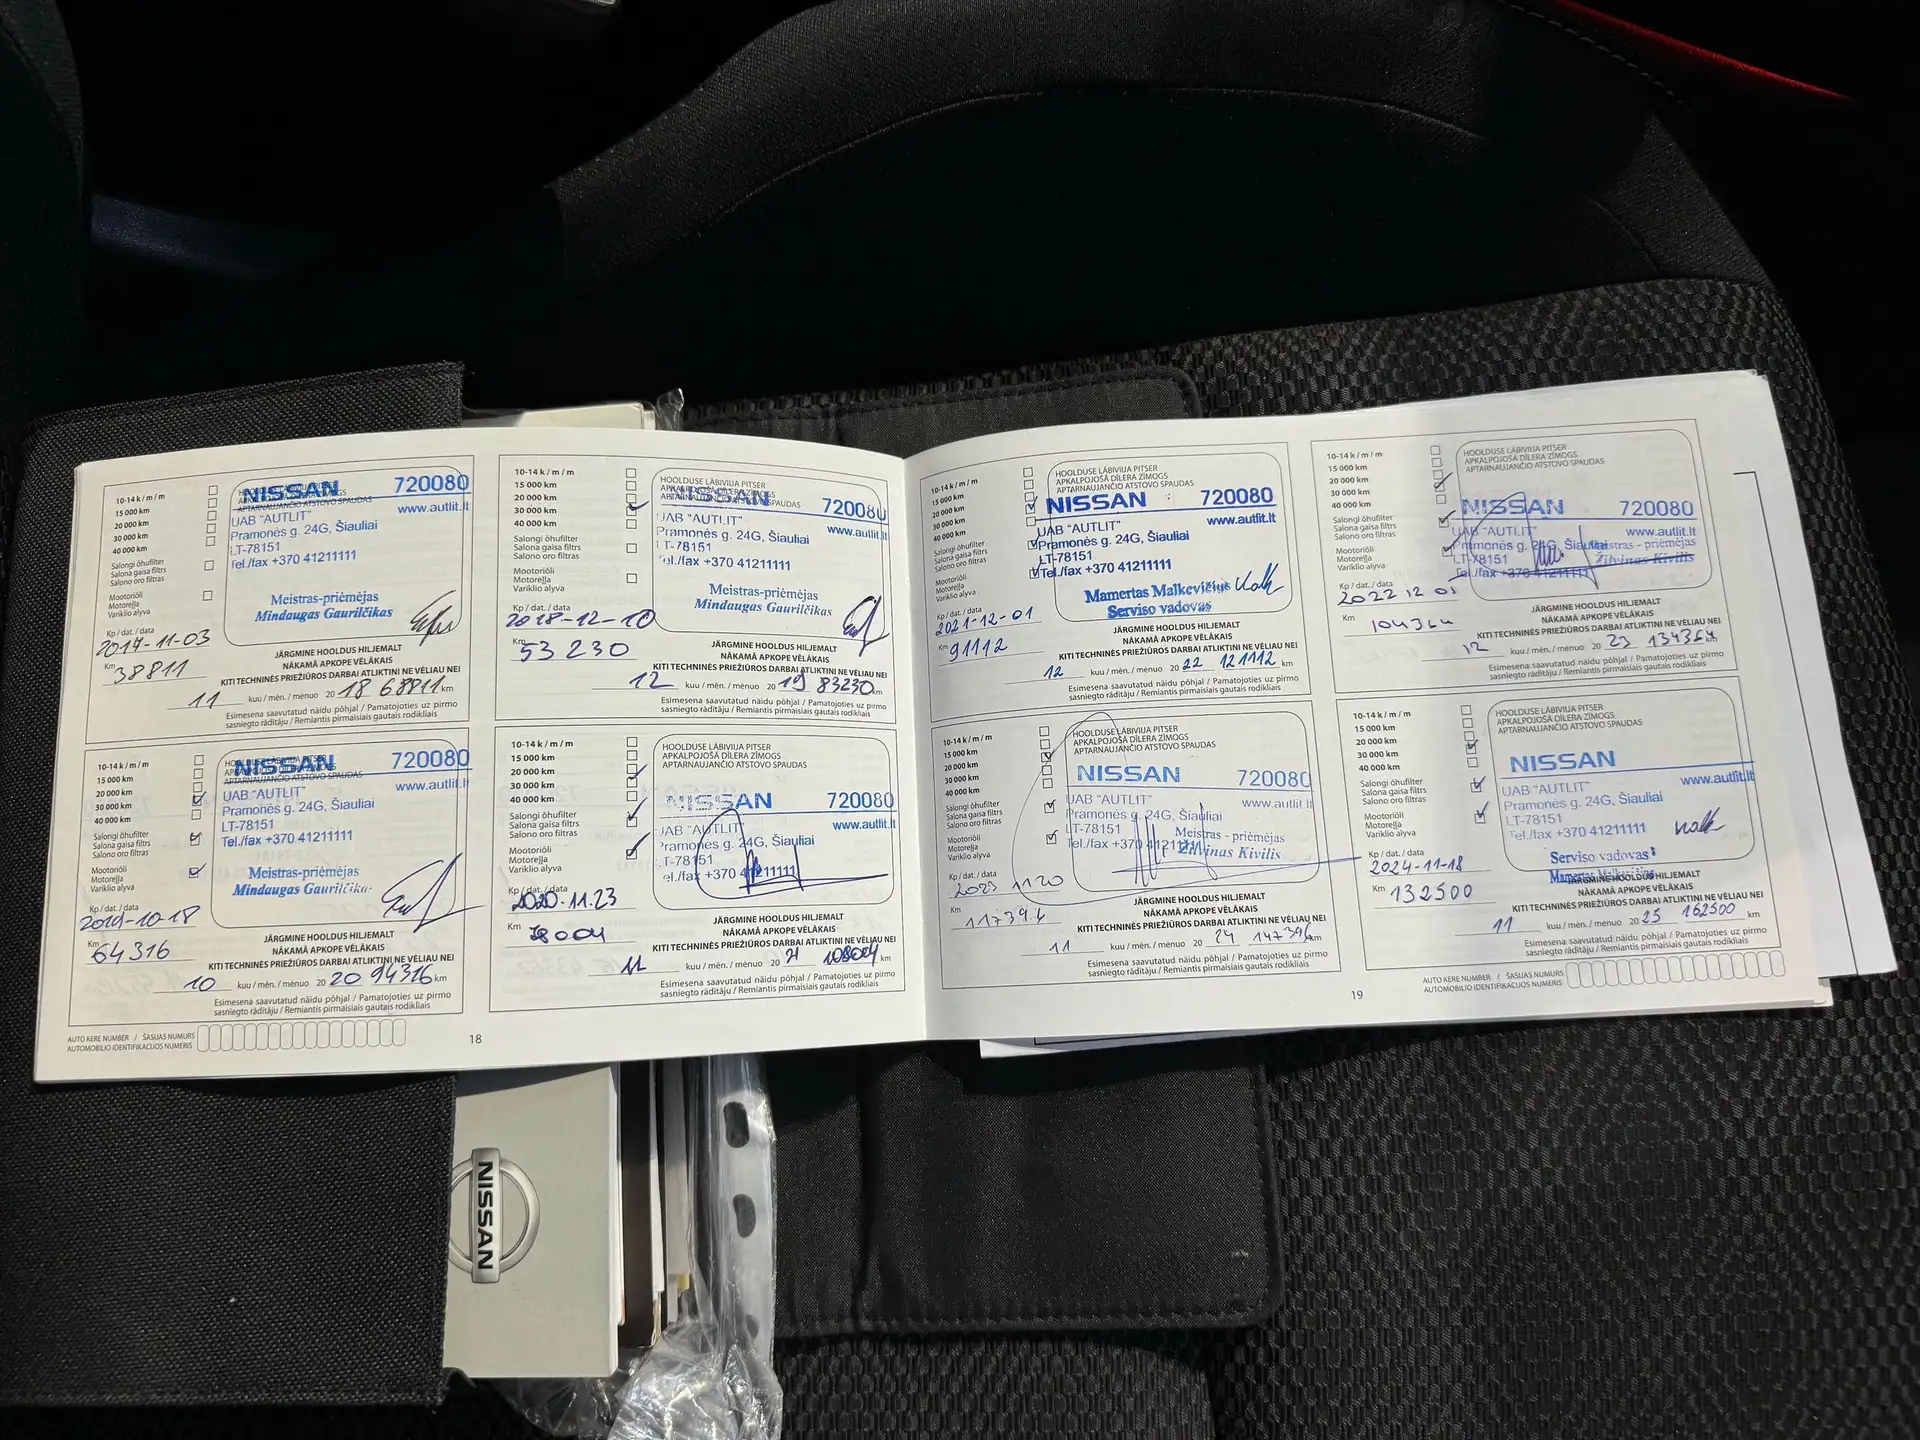 10-14 k / m / m
15 000 km
20 000 km
30 000 km
40 000 km
Salongi õhufilter
Salona gaisa filtrs
Salono oro filtras
Mootoriõli
Motoreļļa
Variklio alyva
Kp / dat. / data
2017-11-03
Km
38811
NISSAN 720080
APTARNAUJANČIO ATSTOVO SPAUDAS
www.autlit.lt
UAB "AUTLIT"
Pramonės g. 24G, Šiauliai
LT-78151
Tel./fax +370 41211111
Meistras-priėmėjas
Mindaugas Gaurilčikas
JÄRGMINE HOOLDUS HILJEMALT
NĀKAMĀ APKOPE VĒLĀKAIS
KITI TECHNINĖS PRIEŽIŪROS DARBAI ATLIKTINI NE VĖLIAU NEI
11 kuu / mėn. / mėnuo 20 18 68811 km
Esimesena saavutatud näidu põhjal / Pamatojoties uz pirmo
sasniegto rādītāju / Remiantis pirmaisiais gautais rodikliais
10-14 k / m / m
15 000 km
20 000 km
30 000 km
40 000 km
Salongi õhufilter
Salona gaisa filtrs
Salono oro filtras
Mootoriõli
Motoreļļa
Variklio alyva
Kp / dat. / data
2018-12-10
Km
53 230
HOOLDUSE LÄBIVIIJA PITSER
NISSAN 720080
www.autlit.lt
UAB "AUTLIT"
Pramonės g. 24G, Šiauliai
LT-78151
Tel./fax +370 41211111
Meistras-priėmėjas
Mindaugas Gaurilčikas
JÄRGMINE HOOLDUS HILJEMALT
NĀKAMĀ APKOPE VĒLĀKAIS
KITI TECHNINĖS PRIEŽIŪROS DARBAI ATLIKTINI NE VĖLIAU NEI
12 kuu / mėn. / mėnuo 20 19 83230 km
Esimesena saavutatud näidu põhjal / Pamatojoties uz pirmo
sasniegto rādītāju / Remiantis pirmaisiais gautais rodikliais
10-14 k / m / m
15 000 km
20 000 km
30 000 km
40 000 km
Salongi õhufilter
Salona gaisa filtrs
Salono oro filtras
Mootoriõli
Motoreļļa
Variklio alyva
Kp / dat. / data
2019-10-18
Km
64316
NISSAN 720080
APTARNAUJANČIO ATSTOVO SPAUDAS
www.autlit.lt
UAB "AUTLIT"
Pramonės g. 24G, Šiauliai
LT-78151
Tel./fax +370 41211111
Meistras-priėmėjas
Mindaugas Gaurilčikas
JÄRGMINE HOOLDUS HILJEMALT
NĀKAMĀ APKOPE VĒLĀKAIS
KITI TECHNINĖS PRIEŽIŪROS DARBAI ATLIKTINI NE VĖLIAU NEI
10 kuu / mėn. / mėnuo 20 20 94316 km
Esimesena saavutatud näidu põhjal / Pamatojoties uz pirmo
sasniegto rādītāju / Remiantis pirmaisiais gautais rodikliais
10-14 k / m / m
15 000 km
20 000 km
30 000 km
40 000 km
Salongi õhufilter
Salona gaisa filtrs
Salono oro filtras
Mootoriõli
Motoreļļa
Variklio alyva
Kp / dat. / data
2020-11-23
Km
78004
HOOLDUSE LÄBIVIIJA PITSER
APKALPOJOŠĀ DĪLERA ZĪMOGS
APTARNAUJANČIO ATSTOVO SPAUDAS
NISSAN 720080
www.autlit.lt
UAB "AUTLIT"
Pramonės g. 24G, Šiauliai
LT-78151
Tel./fax +370 41211111
JÄRGMINE HOOLDUS HILJEMALT
NĀKAMĀ APKOPE VĒLĀKAIS
KITI TECHNINĖS PRIEŽIŪROS DARBAI ATLIKTINI NE VĖLIAU NEI
11 kuu / mėn. / mėnuo 20 21 108004 km
Esimesena saavutatud näidu põhjal / Pamatojoties uz pirmo
sasniegto rādītāju / Remiantis pirmaisiais gautais rodikliais
AUTO KERE NUMBER / ŠASIJAS NUMURS
AUTOMOBILIO IDENTIFIKACIJOS NUMERIS
18
10-14 k / m / m
15 000 km
20 000 km
30 000 km
40 000 km
Salongi õhufilter
Salona gaisa filtrs
Salono oro filtras
Mootoriõli
Motoreļļa
Variklio alyva
Kp / dat. / data
2021-12-01
Km
91112
HOOLDUSE LÄBIVIIJA PITSER
APKALPOJOŠĀ DĪLERA ZĪMOGS
APTARNAUJANČIO ATSTOVO SPAUDAS
NISSAN 720080
www.autlit.lt
UAB "AUTLIT"
Pramonės g. 24G, Šiauliai
LT-78151
Tel./fax +370 41211111
Mamertas Malkevičius
Serviso vadovas
JÄRGMINE HOOLDUS HILJEMALT
NĀKAMĀ APKOPE VĒLĀKAIS
KITI TECHNINĖS PRIEŽIŪROS DARBAI ATLIKTINI NE VĖLIAU NEI
12 kuu / mėn. / mėnuo 20 22 121112 km
Esimesena saavutatud näidu põhjal / Pamatojoties uz pirmo
sasniegto rādītāju / Remiantis pirmaisiais gautais rodikliais
10-14 k / m / m
15 000 km
20 000 km
30 000 km
40 000 km
Salongi õhufilter
Salona gaisa filtrs
Salono oro filtras
Mootoriõli
Motoreļļa
Variklio alyva
Kp / dat. / data
2022 12 01
Km
104364
HOOLDUSE LÄBIVIIJA PITSER
APKALPOJOŠĀ DĪLERA ZĪMOGS
APTARNAUJANČIO ATSTOVO SPAUDAS
NISSAN 720080
www.autlit.lt
UAB "AUTLIT"
Pramonės g. 24G, Šiauliai
LT-78151
Tel./fax +370 41211111
Meistras - priėmėjas
Žilvinas Kivilis
JÄRGMINE HOOLDUS HILJEMALT
NĀKAMĀ APKOPE VĒLĀKAIS
KITI TECHNINĖS PRIEŽIŪROS DARBAI ATLIKTINI NE VĖLIAU NEI
12 kuu / mėn. / mėnuo 20 23 134364 km
Esimesena saavutatud näidu põhjal / Pamatojoties uz pirmo
sasniegto rādītāju / Remiantis pirmaisiais gautais rodikliais
10-14 k / m / m
15 000 km
20 000 km
30 000 km
40 000 km
Salongi õhufilter
Salona gaisa filtrs
Salono oro filtras
Mootoriõli
Motoreļļa
Variklio alyva
Kp / dat. / data
2023 11 20
Km
117394
HOOLDUSE LÄBIVIIJA PITSER
APKALPOJOŠĀ DĪLERA ZĪMOGS
APTARNAUJANČIO ATSTOVO SPAUDAS
NISSAN 720080
www.autlit.lt
UAB "AUTLIT"
Pramonės g. 24G, Šiauliai
LT-78151
Tel./fax +370 41211111
Meistras - priėmėjas
Žilvinas Kivilis
JÄRGMINE HOOLDUS HILJEMALT
NĀKAMĀ APKOPE VĒLĀKAIS
KITI TECHNINĖS PRIEŽIŪROS DARBAI ATLIKTINI NE VĖLIAU NEI
11 kuu / mėn. / mėnuo 20 24 147394 km
Esimesena saavutatud näidu põhjal / Pamatojoties uz pirmo
sasniegto rādītāju / Remiantis pirmaisiais gautais rodikliais
10-14 k / m / m
15 000 km
20 000 km
30 000 km
40 000 km
Salongi õhufilter
Salona gaisa filtrs
Salono oro filtras
Mootoriõli
Motoreļļa
Variklio alyva
Kp / dat. / data
2024-11-18
Km
132500
HOOLDUSE LÄBIVIIJA PITSER
APKALPOJOŠĀ DĪLERA ZĪMOGS
APTARNAUJANČIO ATSTOVO SPAUDAS
NISSAN
www.autlit.lt
UAB "AUTLIT"
Pramonės g. 24G, Šiauliai
LT-78151
Tel./fax +370 41211111
Serviso vadovas
Mamertas Malkevičius
JÄRGMINE HOOLDUS HILJEMALT
NĀKAMĀ APKOPE VĒLĀKAIS
KITI TECHNINĖS PRIEŽIŪROS DARBAI ATLIKTINI NE VĖLIAU NEI
11 kuu / mėn. / mėnuo 20 25 162500 km
Esimesena saavutatud näidu põhjal / Pamatojoties uz pirmo
sasniegto rādītāju / Remiantis pirmaisiais gautais rodikliais
19
AUTO KERE NUMBER / ŠASIJAS NUMURS
AUTOMOBILIO IDENTIFIKACIJOS NUMERIS
NISSAN